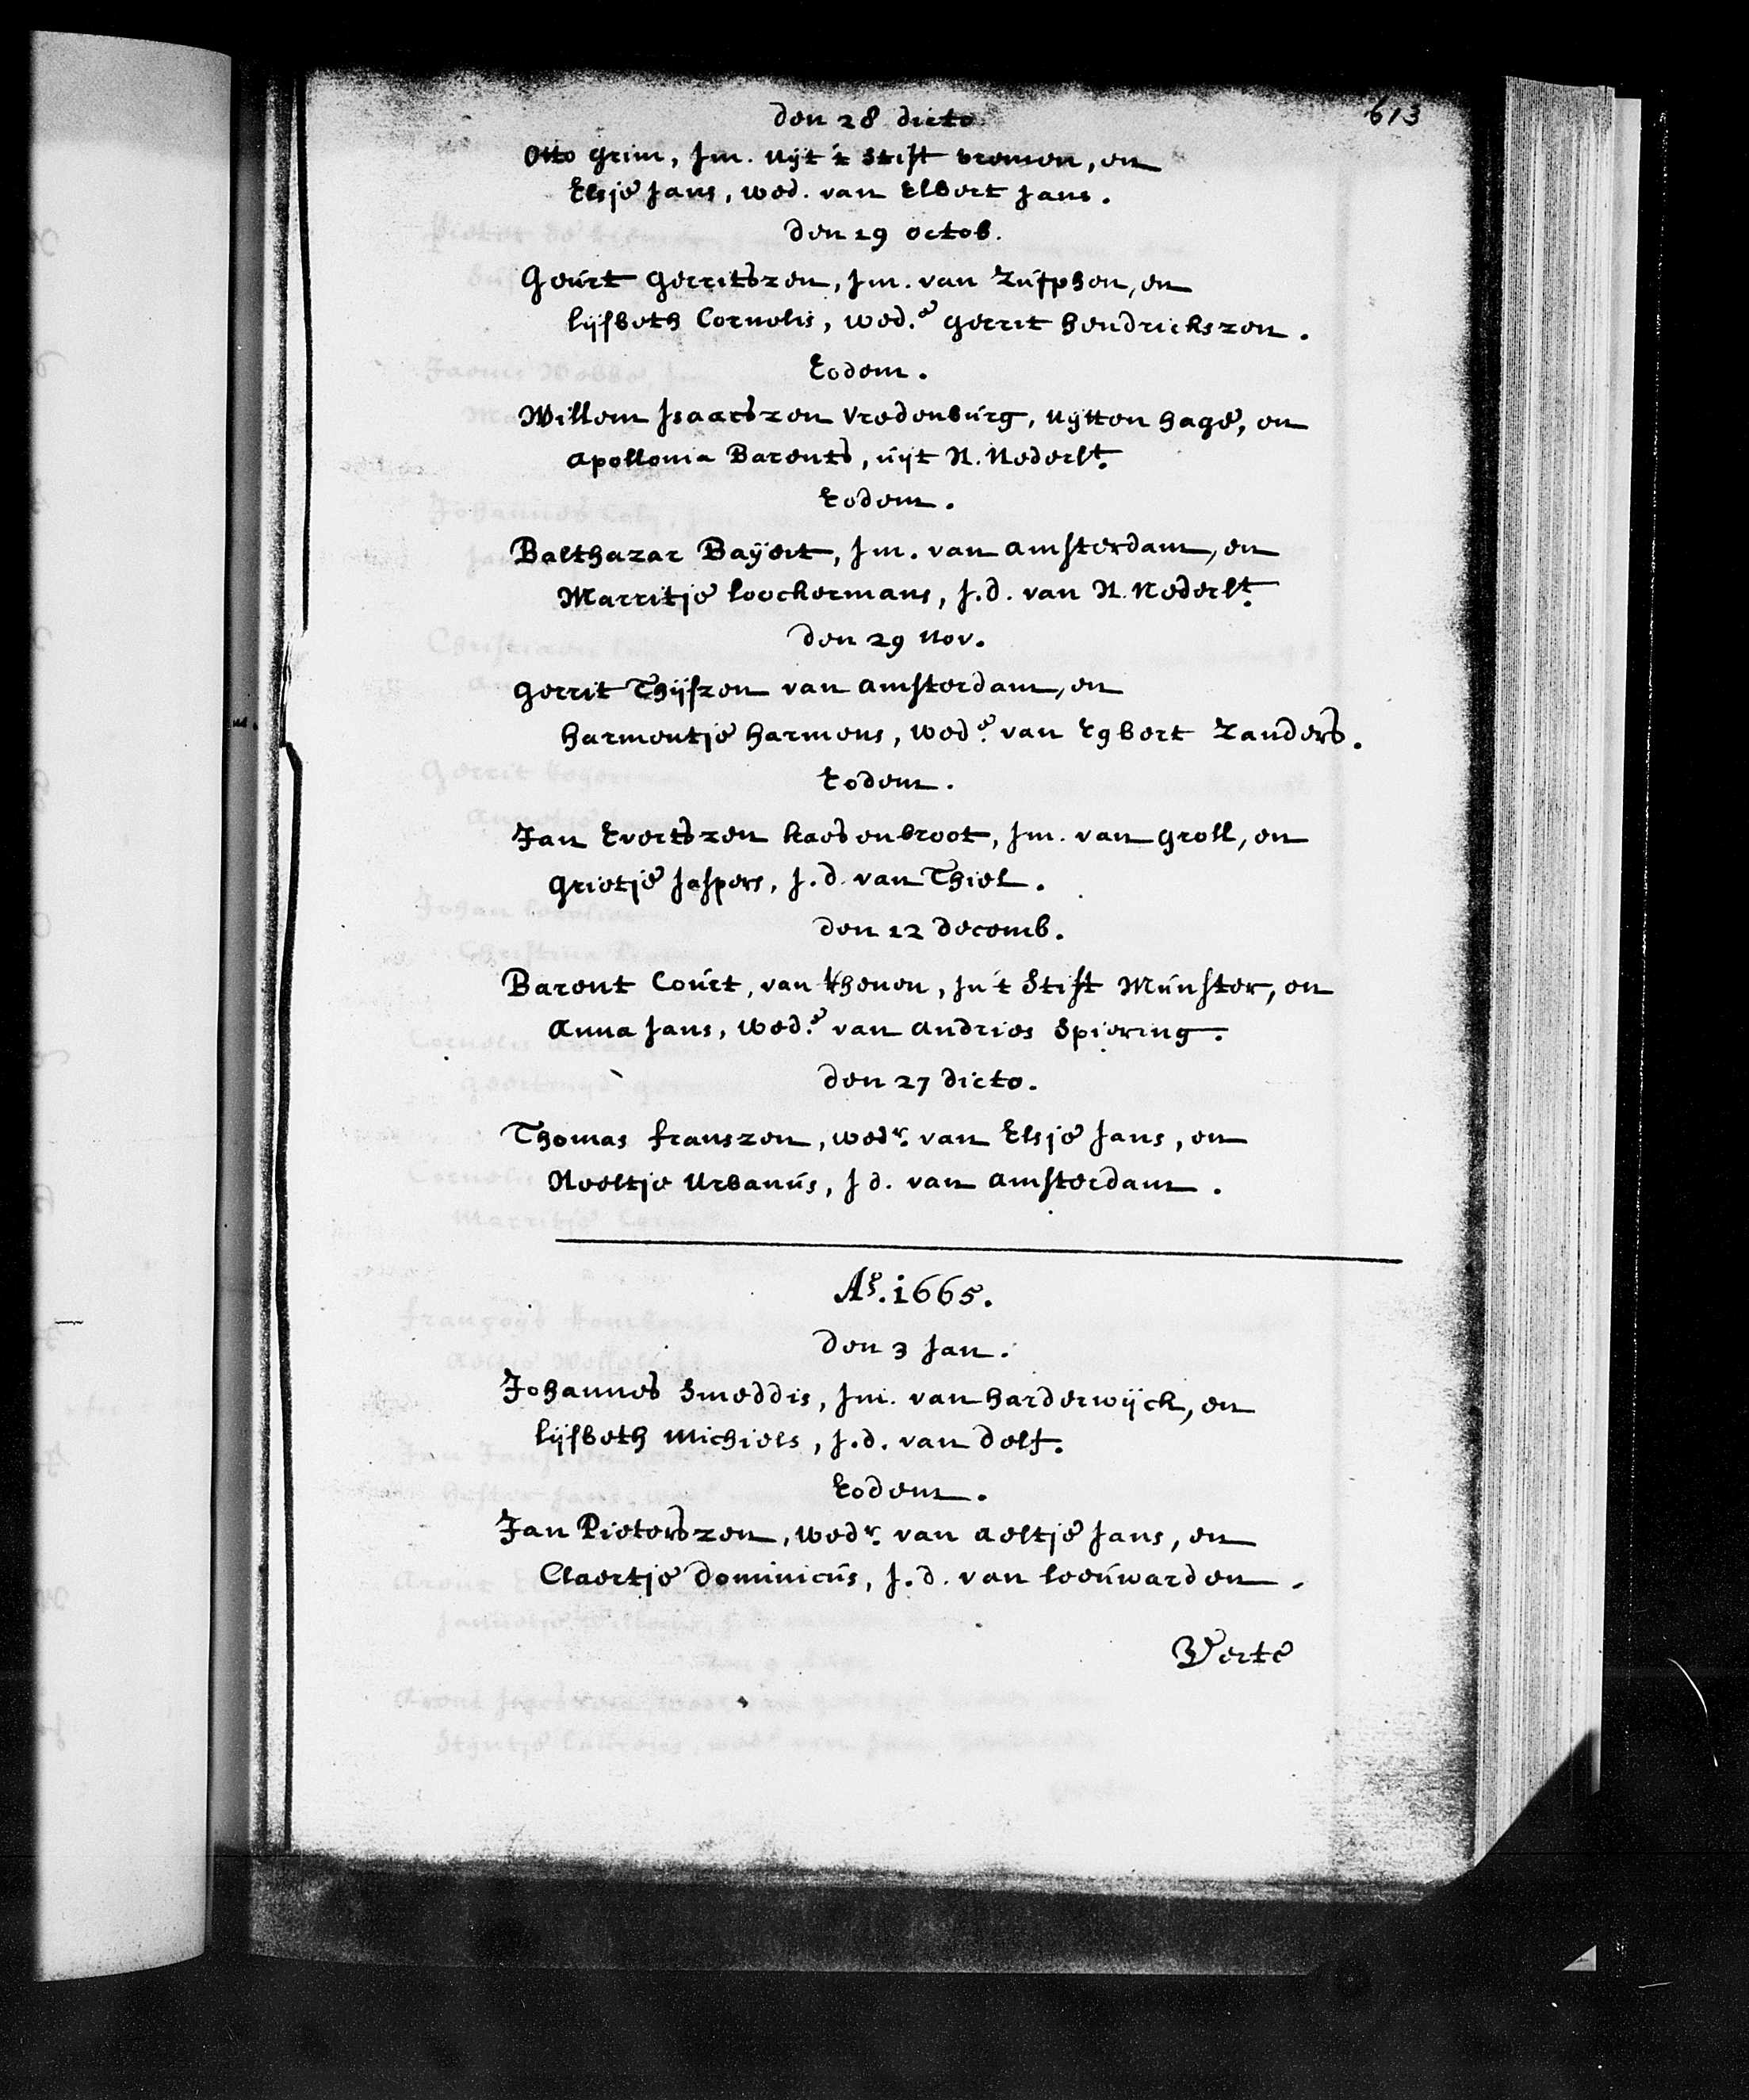 613
den 28 dicto
Otto Grim, Jm. uijt 't Stift Bremen, en
Elsje Jans, wed. van Elbert Jans.
den 29 octob.
Geurt Gerritszen, Jm. van Zutphen, en
Lijsbeth Cornelis, wed.e Gerrit Hendrickszen.
Eodem.
Willem Isaacszen Vredenburg, uijtten Hage, en
Apollonia Barents, uijt N. Nederlt.
Eodem.
Balthazar Baÿert, Jm. van Amsterdam, en
Marritje Loockermans, J.d. van N. Nederlt.
den 29 Nov.
Gerrit Thijszen van Amsterdam, en
Harmentje Harmens, wed.e van Egbert Zanders.
Eodem.
Jan Evertszen Kaesenbroot, Jm. van Groll, en
Grietje Jaspers, J.d. van Thiel.
den 12 Decemb.
Barent Court, van Rhenen, in 't Stift Munster, en
Anna Jans, wed.e van Andries Spiering.
den 27 dicto.
Thomas Franszen, wedr. van Elsje Jans, en
Neeltje Urbanus, J d. van Amsterdam.
Ao. 1665.
den 3 Jan.
Johannes Smeddis, Jm. van Harderwijck, en
Lijsbeth Michiels, J.d. van Delf.
Eodem.
Jan Pieterszen, wedr. van Aeltje Jans, en
Claertje Dominicus, J.d. van Leeuwarden.
Verte